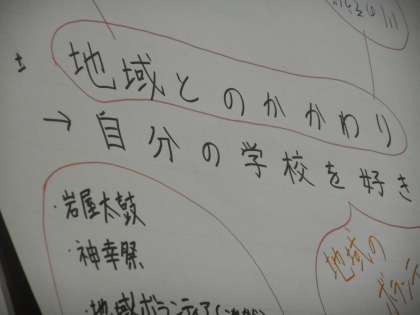 地域とのかかわり
→ 自分の学校を好き
・岩屋太鼓
・神幸祭
・地域ボランティア(
地域の
ボランテ